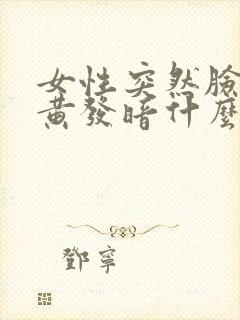 女性突然臉
黃發暗什麼
鄧寧